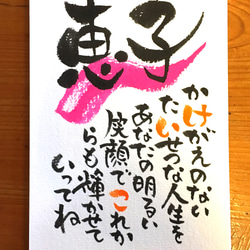 恵子
かけがえのない
たいせつな人生を
あなたの明るい
笑顔でこれか
らも輝かせて
いってね